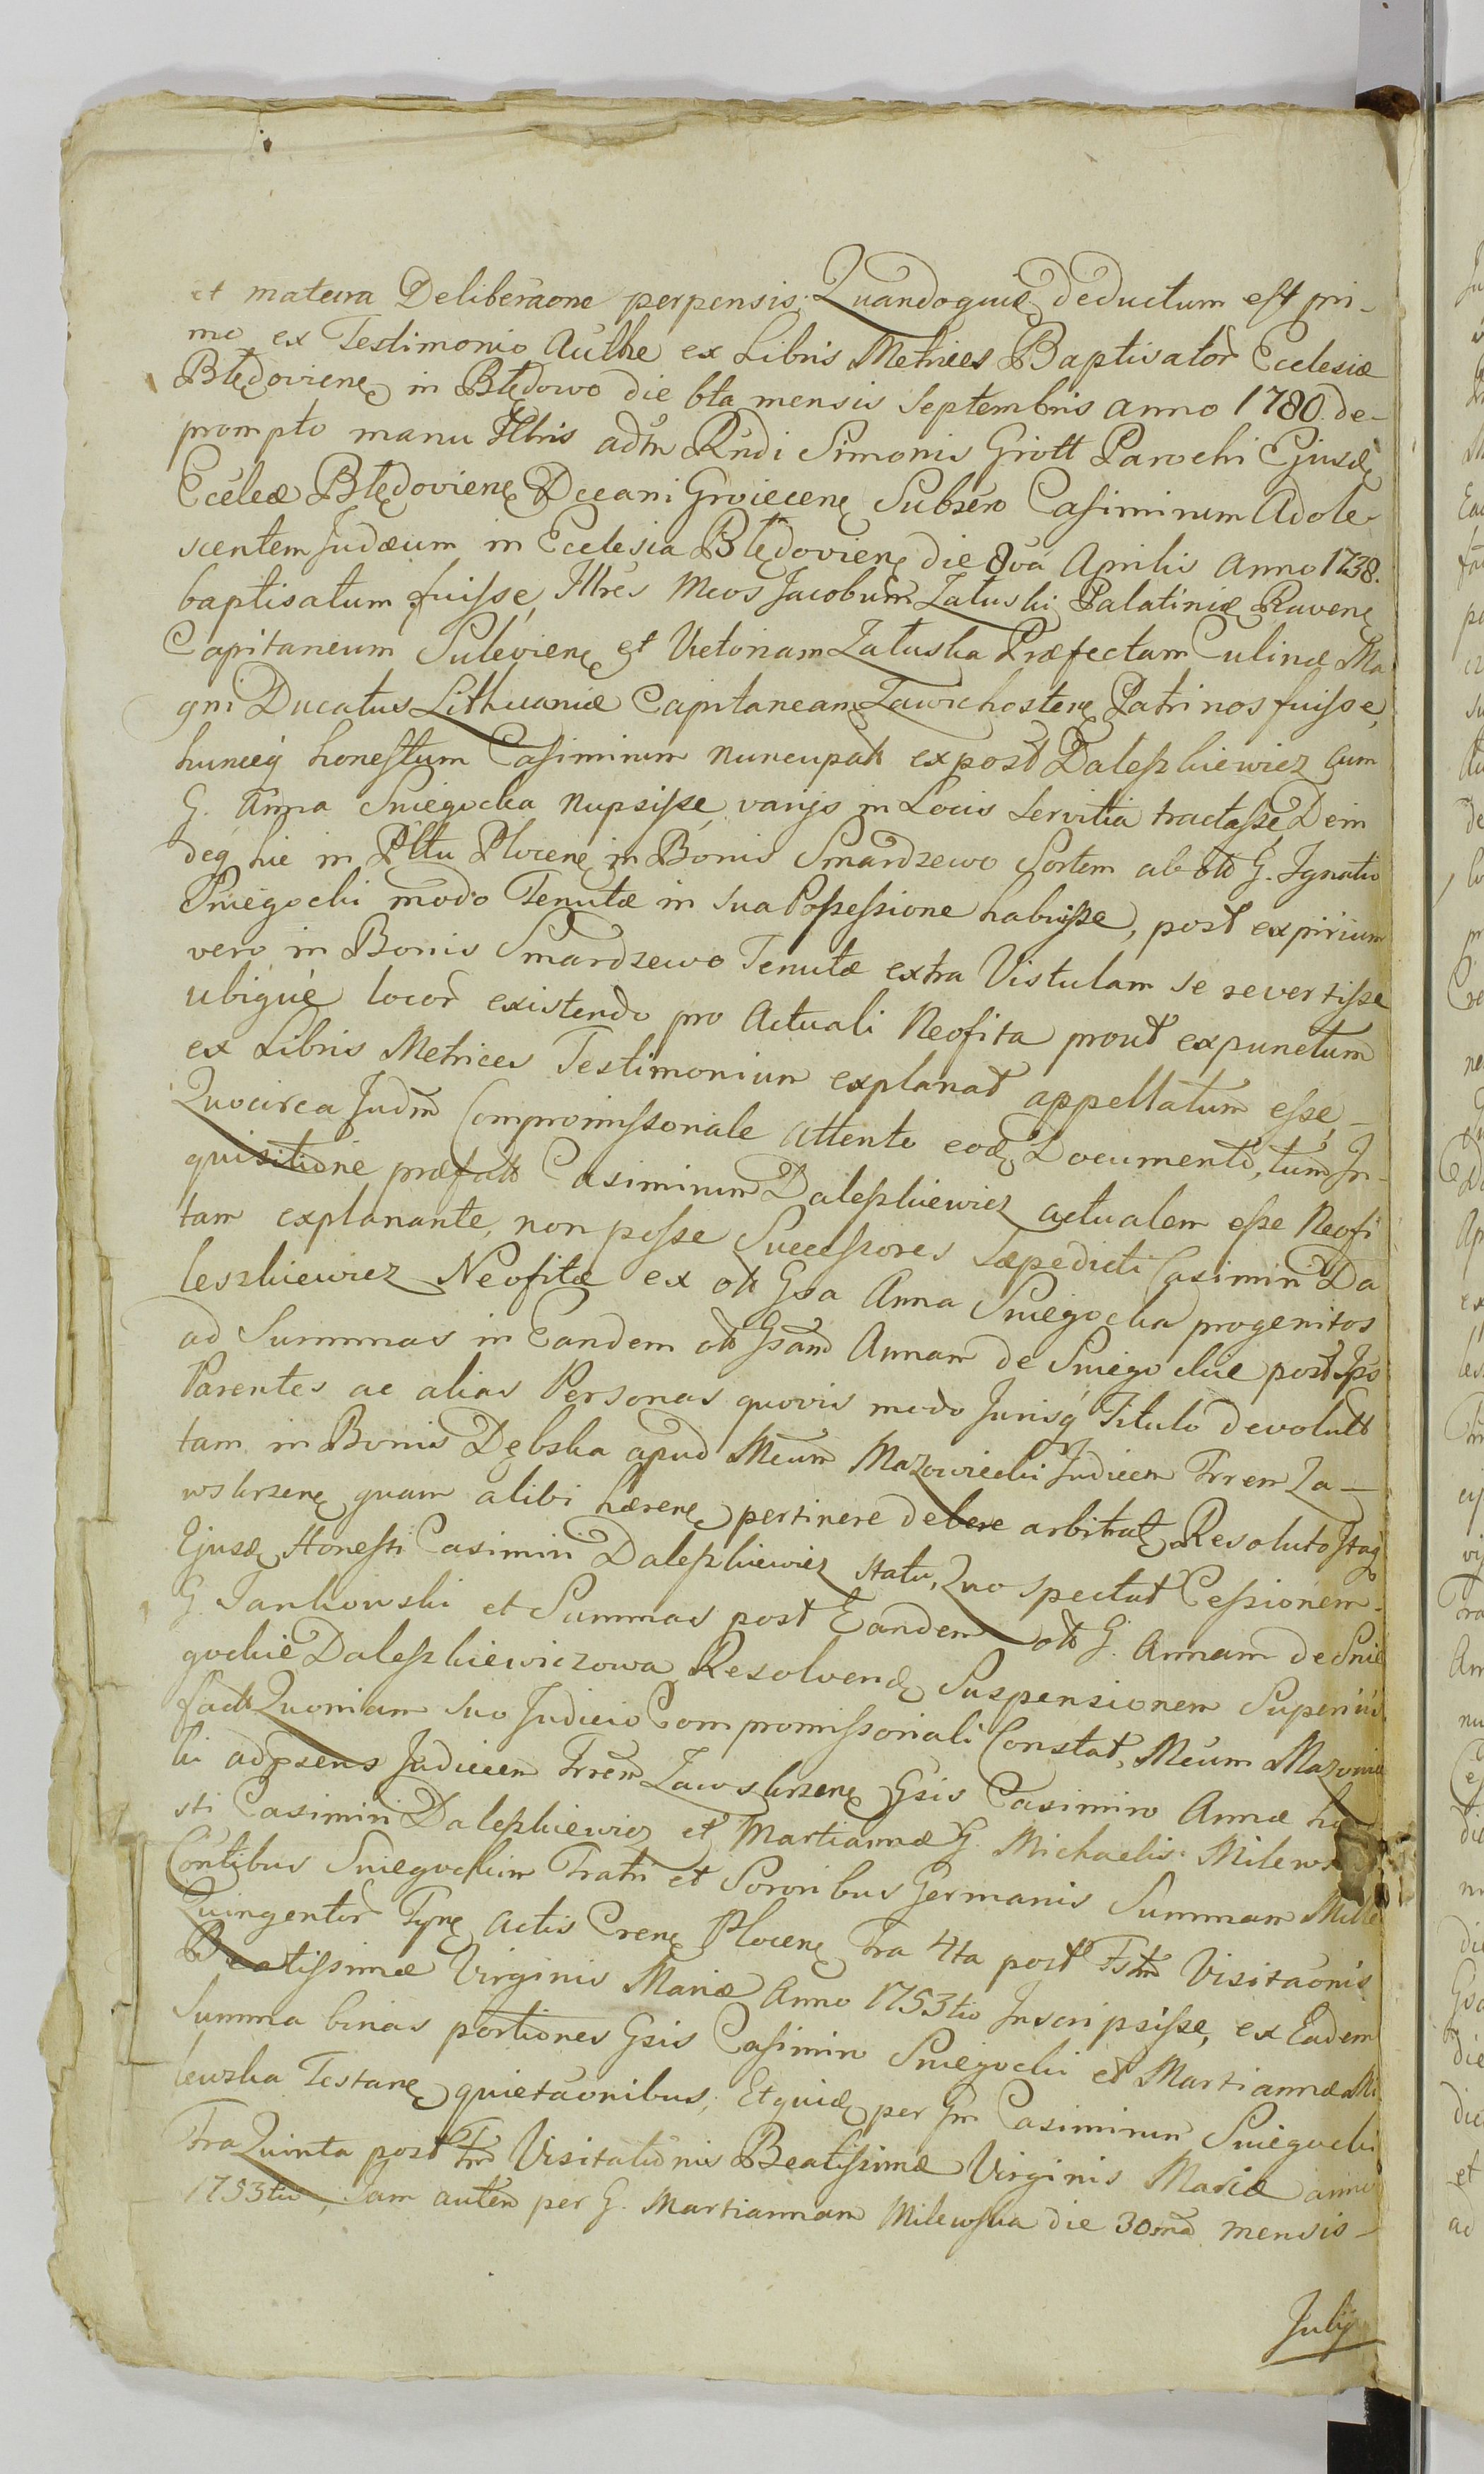 et matura Deliberaone perpensis. Quandoquid deductum est pri-
mo ex Testimonio Authe ex Libris Metrices Baptisator Ecclesiæ
Błędoviene in Błędowo die 6ta mensis Septembris anno 1780. de-
prompto manu Illris adm Rndi Simonis Grott Parochi Ejusd
Eccleæ Błędoviene Decani Groiecene Subscro Casimirum Adole-
scentem Judæum in Ecclesia Błędoviene die 8va Aprilis Anno 1738.
baptisatum fuisse, Illres Mcos Jacobum Załuski Palatinid Ravene
Capitaneum Suleviene et Victoriam Załuska Præfectam Culinæ Ma
gni Ducatus Lithuaniæ Capitaneam Zawichostene Patrinos fuisse,
huncq honestum Casimirum nuncupat expost Daleszkiewicz cum
G. Anna Sniegocka nupsisse, varijs in Locis Servitia tractasse, Dein
deq hic in Plttu Plocene in Bonis Smardzewo Sortem ab ott G. Ignatio
Sniegocki modo Tenutæ in sua Possessione habuisse, post expirium
vero in Bonis Smardzewo Tenutæ extra Vistulam se revertisse
ubiquè locor existendo pro Actuali Neofita prout expunctum
ex Libris Metrices Testimonium explanat appellatum esse, -
Quocirca Judm Compromissoriale attento eod Documento, tum In-
quisitione præfatt Casimirum Daleszkiewicz actualem esse Neofi
tam explanante, non posse Successores sæpedicti Casimiri Da
leszkiewicz Neofitæ ex ott Gsa Anna Sniegocka progenitos
ad Summas in Eandem ott Gsam Annam de Sniegockie post Ipso
Parentes ac alias Personas quovis modo Jurisq Titulo devolutt
tam in Bonis Dębska apud Mcum Mazowiecki Judicem Trrem Za-
wskrzene quam alibi hærene pertinere debere arbitrat. Resoluto Itaq
Ejusd Honesti Casimiri Daleszkiewicz statu, Quo spectat Cessionem
G. Tankowski et Summas post Eandem ott G. Annam de Snie
gockie Daleszkiewiczowa Resolvend Suspensionem Superius
fatt Quoniam suo Judicio Compromissoriali Constat, Mcum Mazowie
ki adpsens Judicem Trrem Zawskrzene Gsis Casimiro Annæ ho
sti Casimiri Daleszkiewicz et Martiannæ G. Michaelis Milews
Contibus Sniegockim Fratri et Sororibus Germanis Summam Mille
Quingentor Tyne Actis Crene Plocene Fra 4ta post Fstm Visitaonis
Beatissimæ Virginis Mariæ Anno 1753tio Inscripsisse, ex Eadem
Summa binas portiones Gsis Casimiro Sniegocki et Martiannæ Mi
lewska Testane quietaonibus, Et quid per Gm Casimirum Sniegocki
Fra Quinta post Fm Visitationis Beatissimæ Virginis Mariæ anno
1753tio, Jam autem per G. Martiannam Milewska die 30ma mensis -
Julij